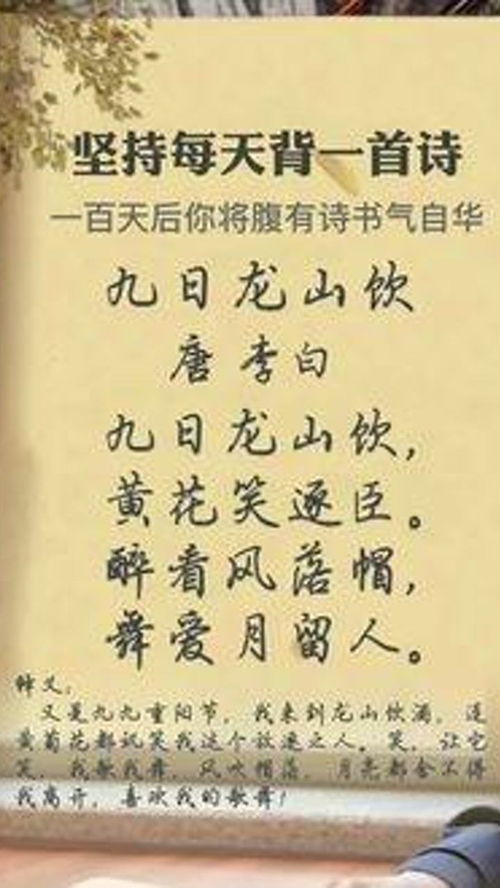 坚持每天背一首诗
一百天后你将腹有诗书气自华
九日龙山饮
唐 李白
九日龙山饮,
黄花笑逐臣。
醉看风落帽,
舞爱月留人。
释义:
又是九九重阳节, 我来到龙山饮酒, 连
黄菊花都讥笑我这个放逐之人。笑, 让它
笑, 我歌我舞, 风吹帽落, 月亮都舍不得
我离开, 喜欢我的歌舞!